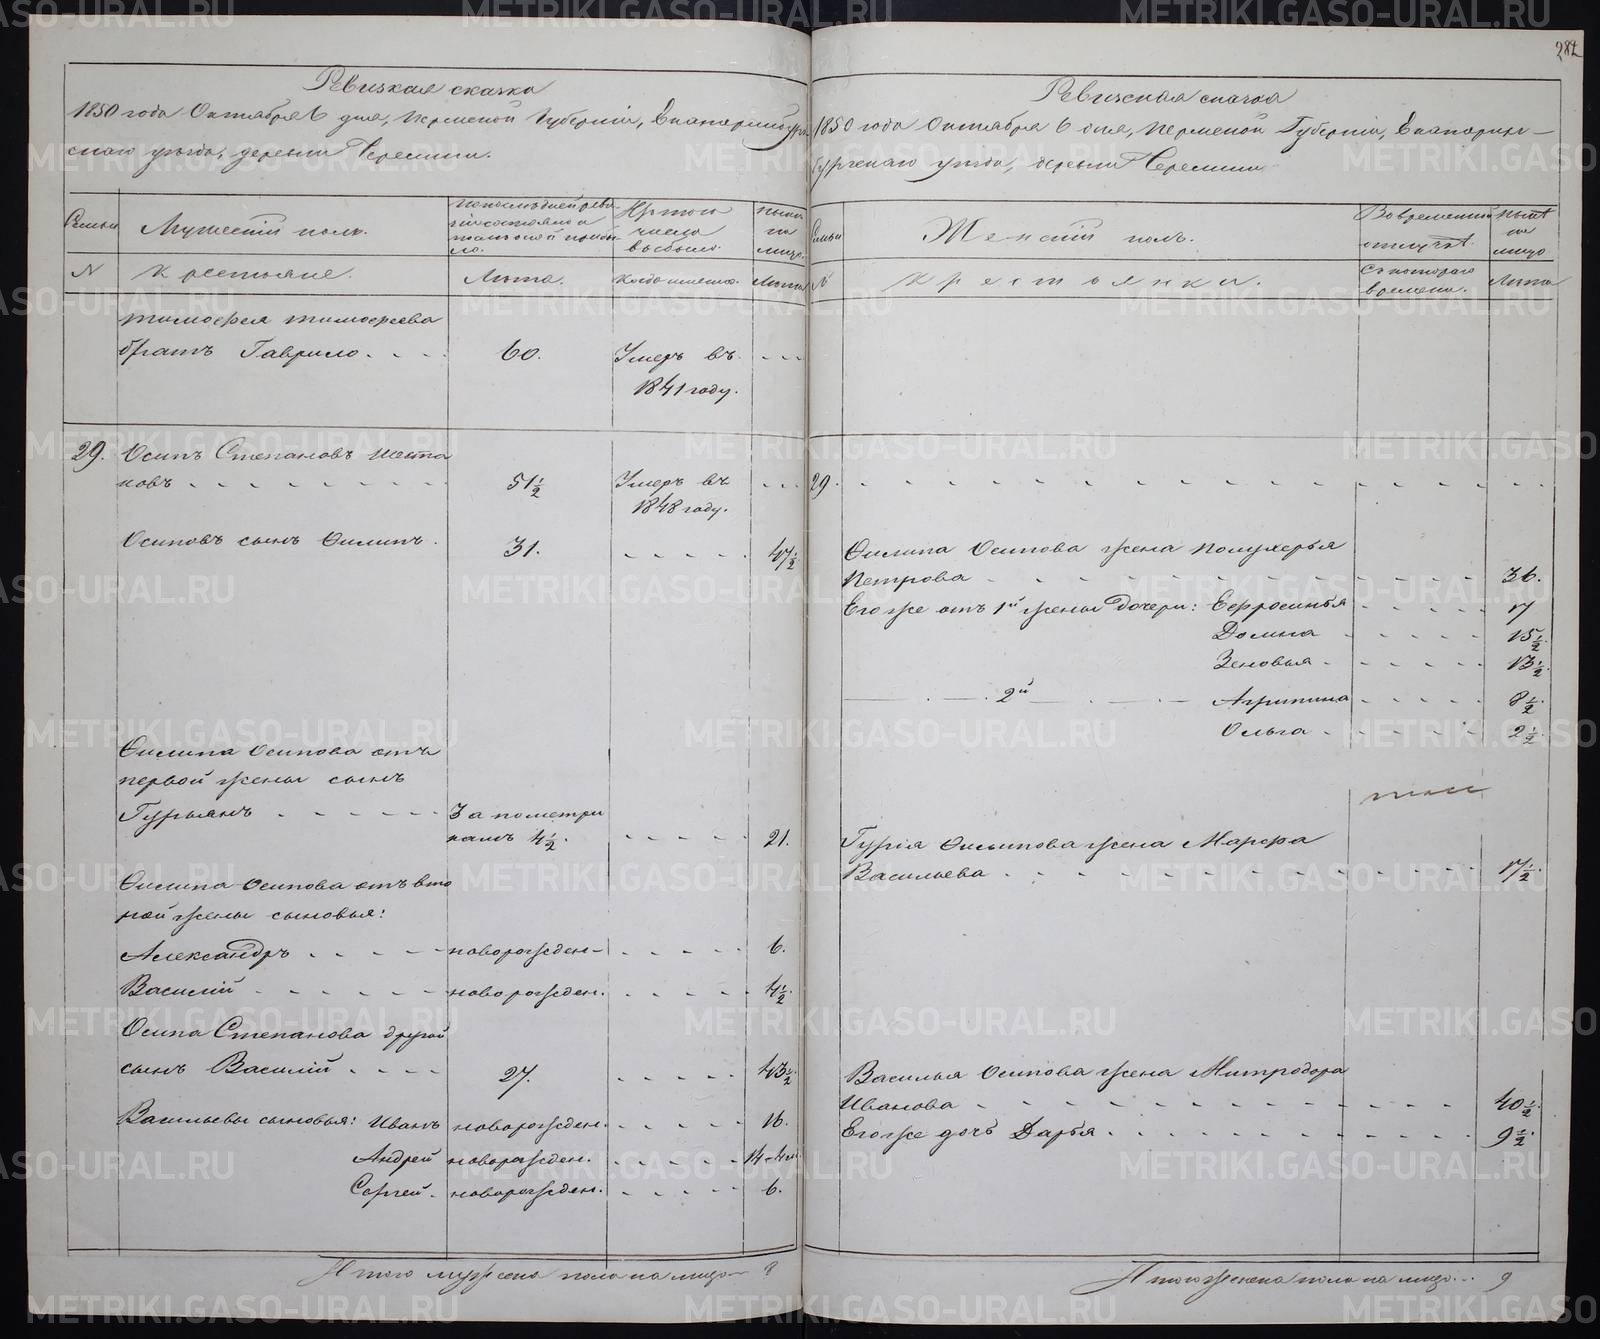 282
Ревизкая сказка
1850 года Октября 6 дня, Пермской Губернiи, Екатеринбург-
скаго уѣзда, деревни Черемиши.
Семьи
Мужескiй полъ.
По послѣдней реви-
зiи состояло и
послѣ оной прибы-
ло.
Изъ того
числа
выбыло.
Нынѣ
на
лицо.
N
Крестьяне.
Лѣта.
Когда именно.
Лѣта
Тимофея Тимофеева
братъ Гаврило. - - -
60.
Умеръ въ
- - -
1841 году.
29.
Осипъ Степановъ Шеста
ковъ - - - - - - - -
51 1/2
Умеръ въ
- - -
1848 году.
Осиповъ сынъ Филипъ.
31.
- - - - -
47 1/2
Филипа Осипова отъ
первой жены сынъ
Гурьянъ - - - - - -
За пометри
камъ 4 1/2.
- - - - -
21.
Филипа Осипова отъ вто
рой жены сыновья:
Александръ - - - - -
новорожден-
- - - - -
6.
Василiй - - - - - -
новорожден.
- - - - -
4 1/2
Осипа Степанова другой
сынъ Василiй - - - -
27.
- - - - -
43 1/2
Васильевы сыновья: Иванъ
новорожден.
- - - - -
16.
Андрей
новорожден.
- - - - -
14-4 м.
Сергей.
новорожден.
- - - - -
6.
Итого мужеска пола на лицо - 9
Ревизская сказка
1850 года Октября 6 дня, Пермской Губернiи, Екатерин-
бургскаго уѣзда, деревни Черемиши
Семьи
Женскiй полъ.
Во временной
отлучкѣ.
Нынѣ
на
лицо
N
Крестьянки.
Съ котораго
времени.
Лѣта
29.
Филипа Осипова жена Полухерья
Петрова - - - - - - - -
36.
Его же отъ 1й жены дочери: Ефросинья
- - - - -
17
Домна
- - - - -
15 1/2
Зеновья -
- - - - -
13 1/2
— 2й — Агрипина
- - - - -
8 1/2
Ольга -
- - - - -
2 1/2
Гурiя Филипова жена Марфа
Васильева - - - - - - - -
17 1/2
Василья Осипова жена Митродора
Иванова - - - - - - - -
40 1/2
Его же дочь Дарья - - - - -
9 1/2
Итого женска пола на лицо - - 9
METRIKI.GASO-URAL.RU